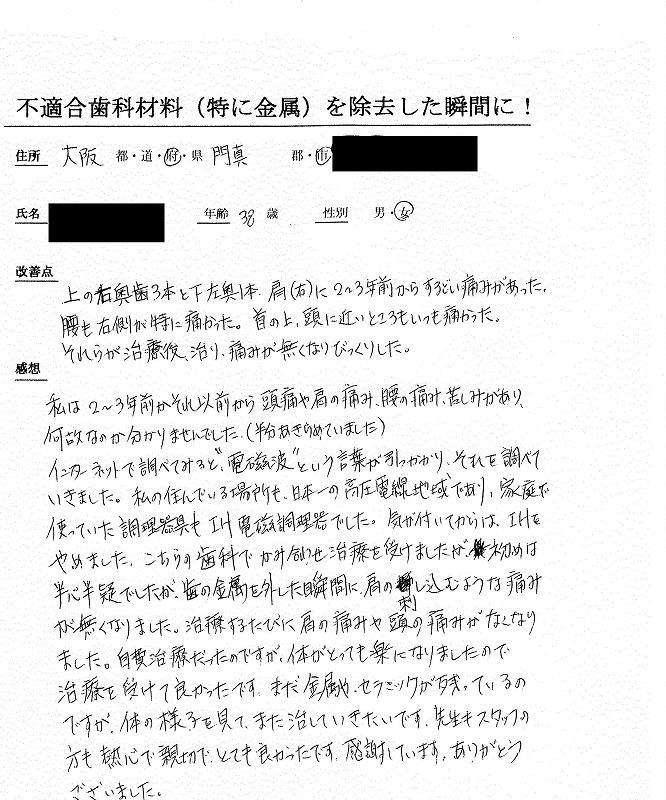 不適合歯科材料（特に金属）を除去した瞬間に！
住所 大阪 都・道・府・県 門真 郡・市
氏名 年齢 38 歳 性別 男・女
改善点
上の右奥歯3本と下左奥1本、肩(右)に2~3年前からするどい痛みがあった。
腰も右側が特に痛かった。首の上、頭に近いところもいつも痛かった。
それらが治療後、治り、痛みが無くなりびっくりした。
感想
私は2~3年前かそれ以前から頭痛や肩の痛み、腰の痛み、苦しみがあり、
何故なのか分かりませんでした。(半分あきらめていました)
インターネットで調べてみると、"電磁波"という言葉が引っかかり、それを調べて
いきました。私の住んでいる場所も、日本一の高圧電線地域であり、家庭で
使っていた調理器具もIH電磁調理器でした。気が付いてからは、IHを
やめました。こちらの歯科でかみ合わせ治療を受けましたが、初めは
半心半疑でしたが、歯の金属を外した瞬間に、肩の刺し込むような痛み
が無くなりました。治療するたびに肩の痛みや頭の痛みがなくなり
ました。自費治療だったのですが、体がとっても楽になりましたので
治療を受けて良かったです。まだ金属や、セラミックが残っているの
ですが、体の様子を見て、また治していきたいです。先生もスタッフの
方も熱心で親切で、とても良かったです。感謝しています。ありがとう
ございました。